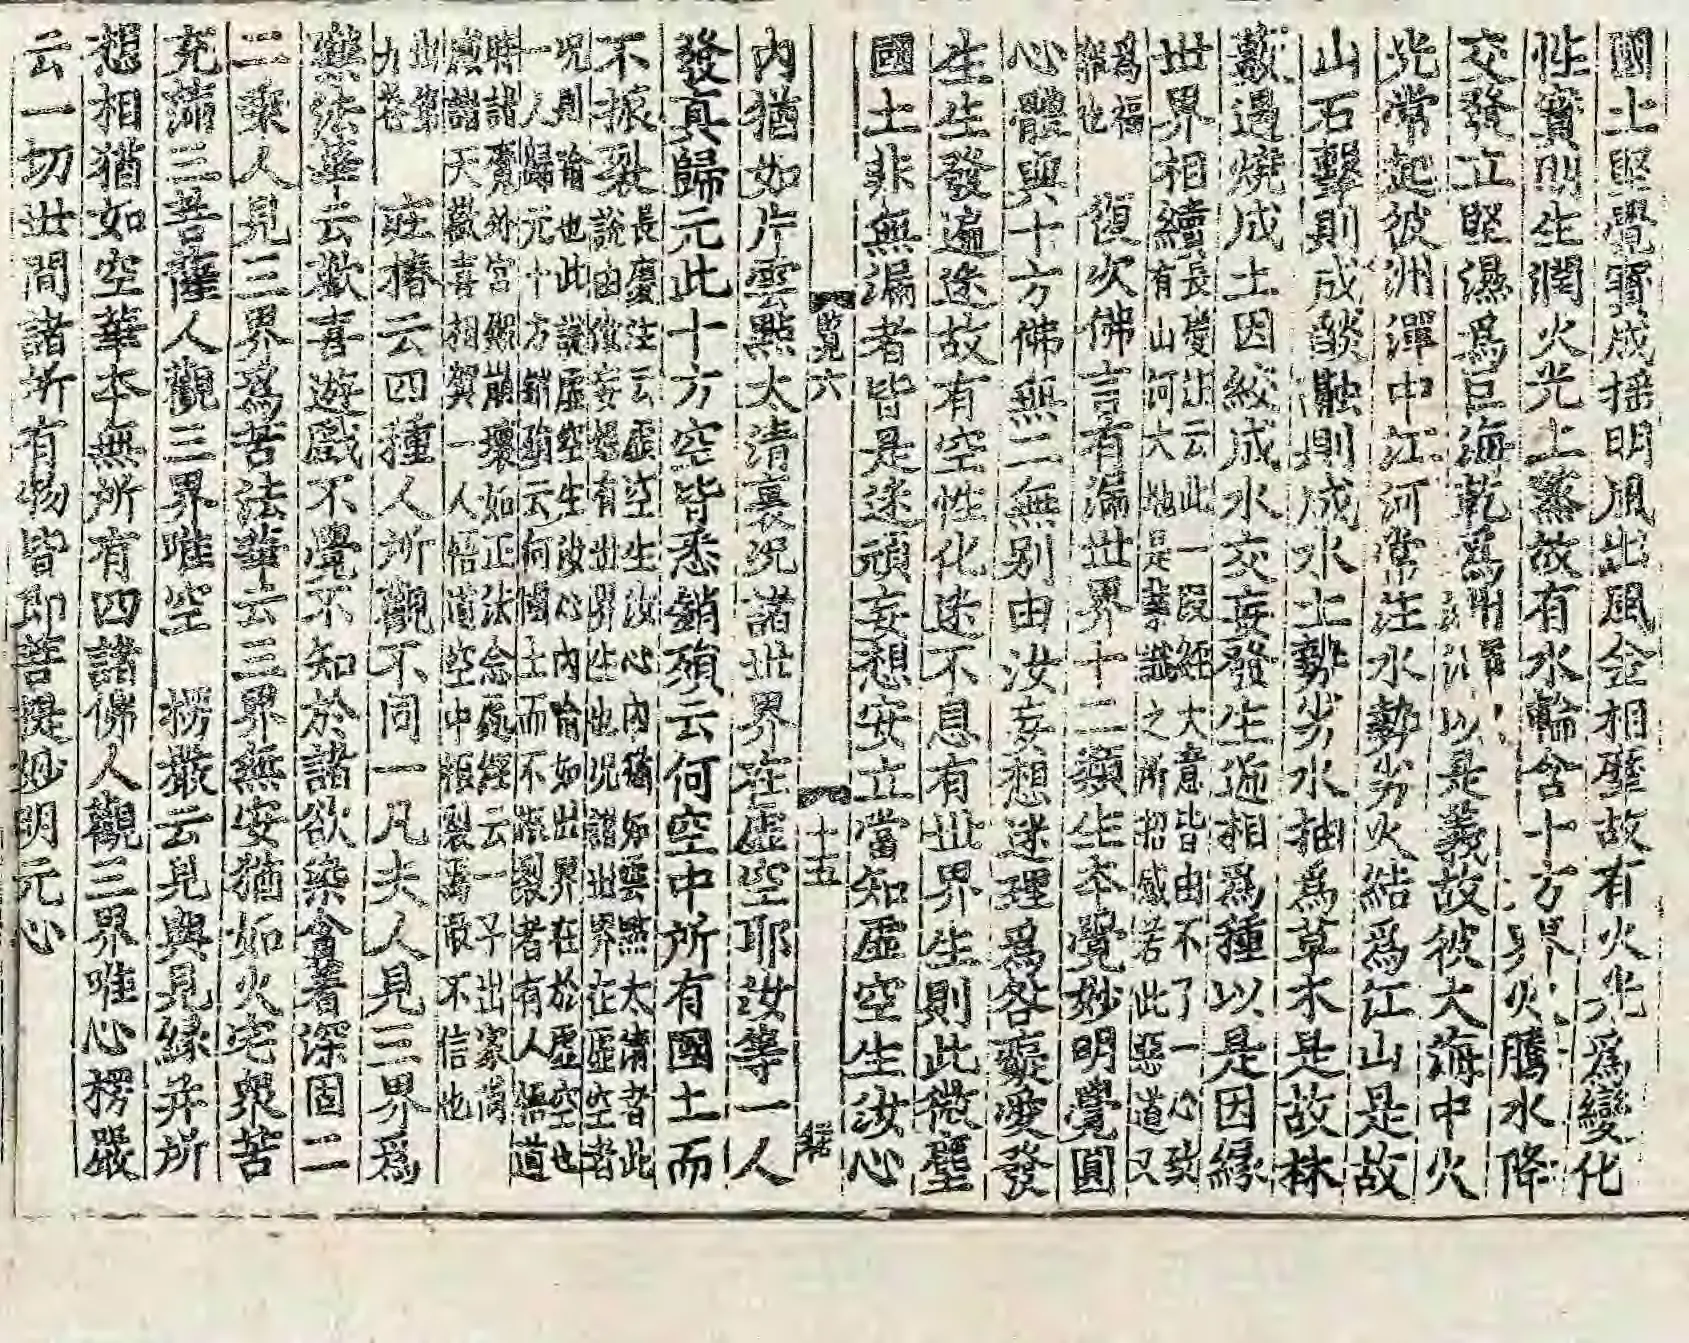 國土堅覺寶成搖明風出風金相摩故有火光爲變化
性寶明生潤火光上蒸故有水輪含十方界火騰水降
交發立堅濕爲巨海乾爲 以是義故彼大海中火
光常起彼洲潬中江河常注水勢劣火結爲江山是故
山石擊則成燄融則成水土勢劣水抽爲草木是故林
藪遇燒成土因絞成水交妄發生遞相爲種以是因緣
世界相續長慶注云此一段經大意皆由不了一心致
有山河大地是業識之所招感若此惡道又
爲福
非福也 復次佛言有漏世界十二類生本覺妙明覺圓
心體與十方佛無二無別由汝妄想迷理爲咎癡愛發
生生發遍迷故有空性化迷不息有世界生則此微塵
國土非無漏者皆是迷頑妄想安立當知虛空生汝心
覽六 十五
內猶如片雲點太清裏況諸世界在虛空耶汝等一人
發真歸元此十方空皆悉銷殞云何空中所有國土而
不振裂長慶注云虛空生汝心內猶如雲點太清者此
說由假妄想有世界生也況諸世界在虛空者
況則喻也此說虛空生汝心內喻如世界在於虛空也
一人歸元十方銷殞云何國土而不振裂者有人悟道
時諸魔外宮殿崩壞如正法念處經云一子出家
感諸天歡喜相賀一人悟道空中振裂焉敢不信也
出第
九卷 莊椿云四種人所觀不同一凡夫人見三界爲
樂法華云歡喜遊戲不覺不知於諸欲染貪著深固二
二乘人見三界爲苦法華云三界無安猶如火宅衆苦
充滿三菩薩人觀三界唯空 楞嚴云見與見緣并所
想相猶如空華本無所有四諸佛人觀三界唯心楞嚴
云一切世間諸所有物皆即菩提妙明元心